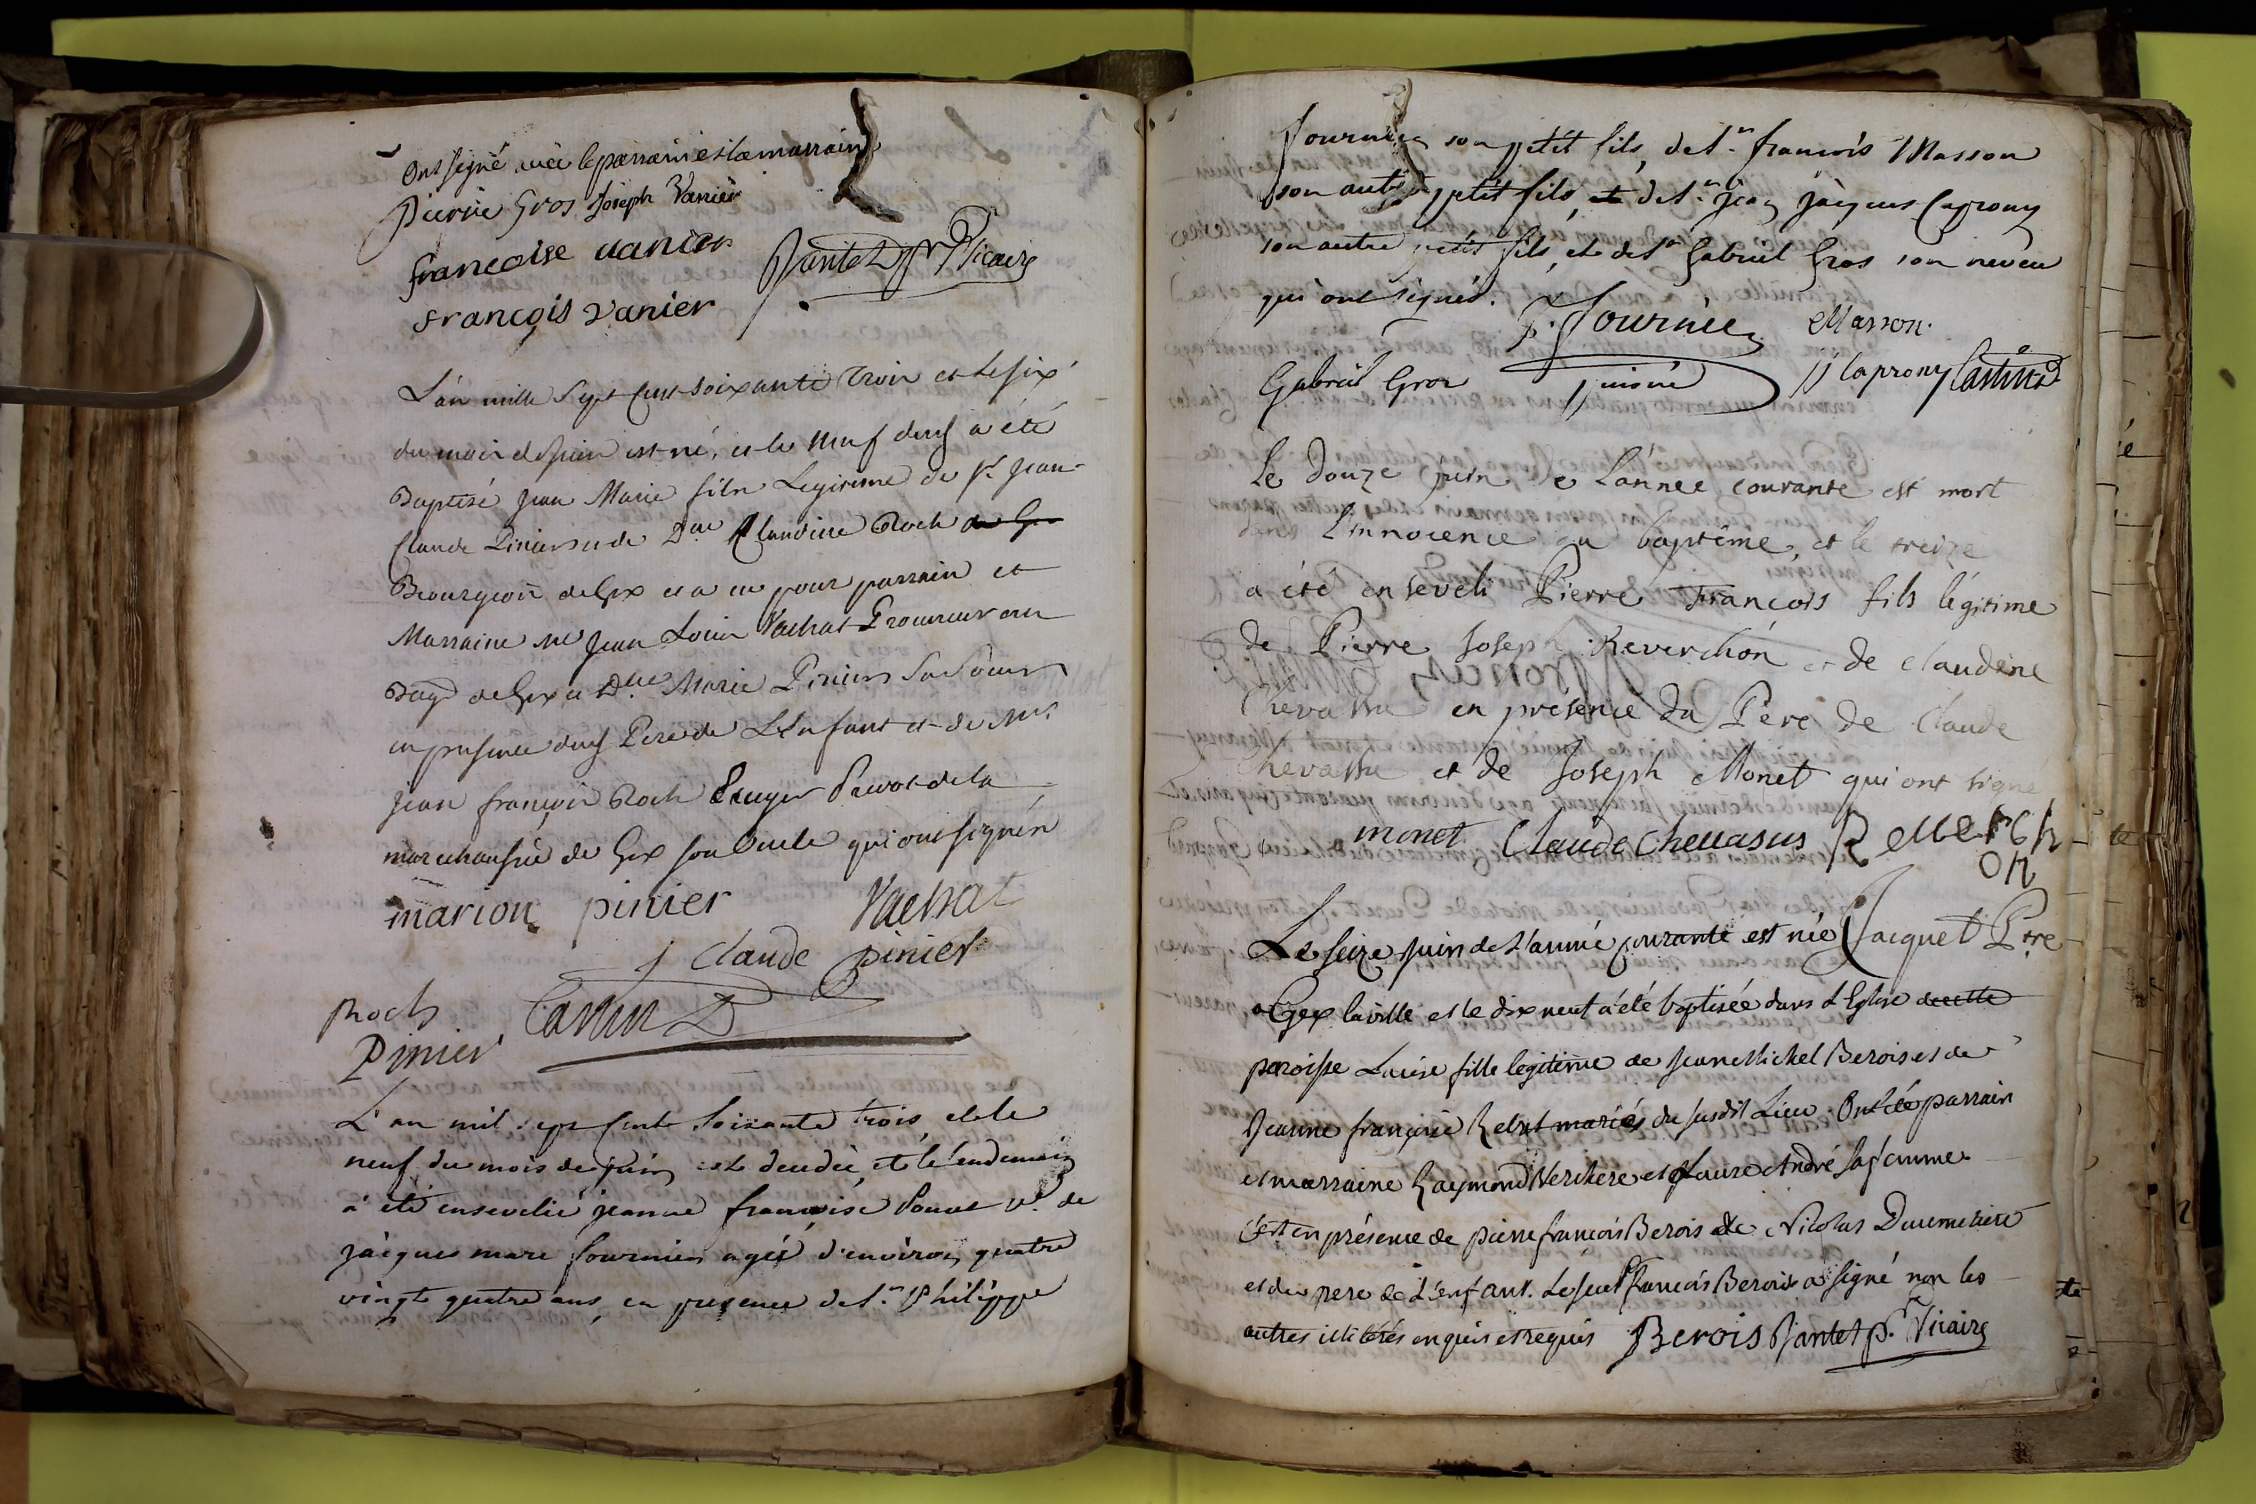 Ont signé avec le parrain et la marraine
Pierre Gros Joseph Vanier
francoise vanier
Jantet ptr Vicaire
francois vanier
L'an mille Sept Cent soixante trois et le six
du mois de juin est né, et le neuf dud a été
Baptisé Jean Marie fils Legitime de Sr Jean
Claude Pinier et de Dlle Claudine Roch
Bourgeois de Gex et a eu pour parrain et
Marraine Me Jean Louis Vachat Procureur au
Bage de Gex et Dlle Marie Pinier Sa Soeur
en presence dud Pere de L'Enfant et de Mr
Jean françois Roch Ecuyer Prevot de la
marechaussée de Gex son Oncle qui ont signés
marion pinier Vachat
J Claude pinier
Roch Castin D
Pinier
L'an mil sept cent soixante trois, et le
neuf du mois de juin est decedée, et le lendemain
a été ensevelie jeanne francoise Ponet ve. de
jacques marc fournier agée d'environ quatre
vingt quatre ans, en presence de Sr. Philippe
fournier son petit fils, de Sr. francois Masson
son autre petit fils, et de Sr. jean jacques Caprony
son autre petit fils, et de Sr Gabriel Gros son neveu
qui ont signés. P. Fournier Masson.
Gabriel Gros JJ Caprony Castin D
Le Douze juin de L'année courante est mort
dans L'innocence du baptême, et le treize
a été enseveli Pierre François fils légitime
de Pierre Joseph Reverchon et de claudine
Chevassu en présence du Père de Claude
Chevassu et de Joseph Monet qui ont signé
monet Claude Chevasus R everch
on
Le seize juin de L'année courante est née Jacquet Ptre
a Gex la ville et le dix neuf a été baptisée dans L'Eglise
paroisse Louise fille legitime de Jean Michel Berois et de
Jeanne françoise Rebut mariés du susdit Lieu. Ont été parrain
et marraine Raymond Verchere et Laure André sa femme
C'est en présence de pierre francois Berois de Nicolas Dumetiere
et du pere de L'enfant. Le seul francois Berois a signé non les
autres illiterés enquis et requis Berois Jantet p. Vicaire